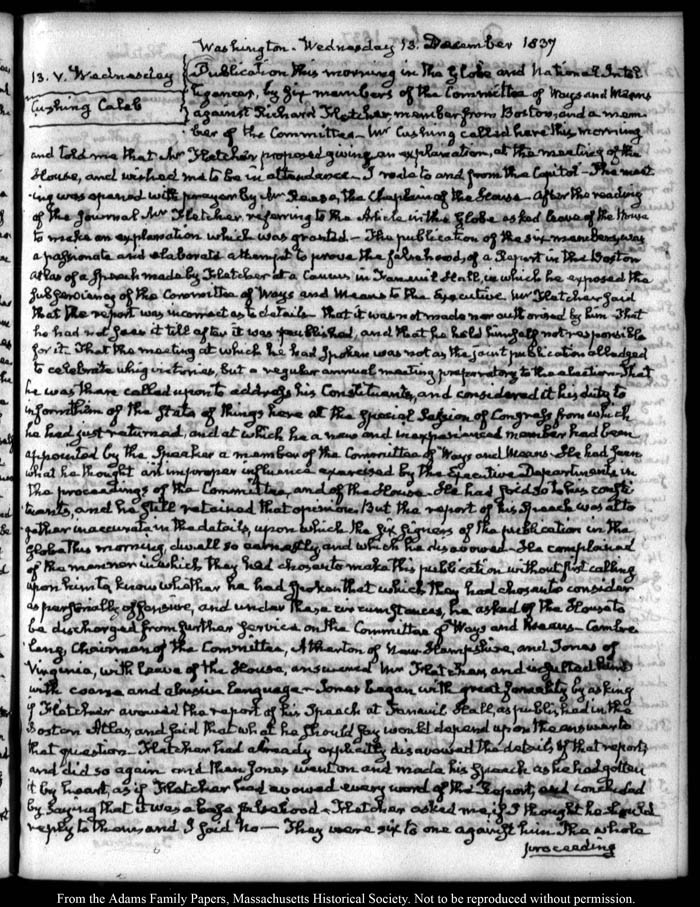 Washington. Wednesday 13. December 1837
13. V. Wednesday
Cushing Caleb
Publication this morning in the Globe and National Intel
ligencer, by six members of the Committee of Ways and Means
against Richard Fletcher, member from Boston, and a mem-
ber of the Committee— Mr Cushing called here this morning
and told me that Mr Fletcher proposed giving an explanation, at the meeting of the
House, and wished me to be in attendance— I rode to and from the Capitol— The meet
ing was opened with prayer by Mr Reese, the Chaplain of the House— After the reading
of the Journal Mr Fletcher referring to the Article in the Globe asked leave of the House
to make an explanation which was granted— The publication of the six members, was
a passionate and elaborate attempt to prove the falsehood, of a Report in the Boston
Atlas of a Speech made by Fletcher at a Caucus in Faneuil Hall, in which he exposed the
subserviency of the Committee of Ways and Means to the Executive Mr Fletcher said
that the report was incorrect as to details— that it was not made nor authorised by him. That
he had not seen it till after it was published, and that he held himself not responsible
for it. That the meeting at which he had spoken was not as the joint publication alledged
to celebrate whig victories, but a regular annual meeting preparatory to the election— That
he was there called upon to address his Constituents, and considered it his duty to
inform them of the State of things here at the Special Session of Congress from which
he had just returned, and at which he a new and inexperienced member had been
appointed by the Speaker a member of the Committee of Ways and Means. He had seen
what he thought an improper influence exercised by the Executive Departments in
the proceedings of the Committee, and of the House— He had said so to his consti
tuents, and he still retained that opinion. But the report of his Speach was alto
gether inaccurate in the details, upon which the six signers of the publication in the
Globe this morning, dwell so earnestly and which he disavowed— He complained
of the manner in which they had chosen to make this publication without first calling
upon him to know whether he had spoken that which they had chosen to consider
as personally offensive, and under these circumstances, he asked of the House to
be discharged from further service on the Committee of Ways and Means— Cambre
leng, Chairman of the Committee, Atherton of New-Hampshire, and Jones of
Virginia, with leave of the House, answered Mr Fletcher, and insulted him
with coarse and abusive language— Jones began with great by asking
if Fletcher avowed the report of his Speach at Faneuil Hall, as published in the
Boston Atlas, and said that what he should say would depend upon the answer to
that question— Fletcher had already explicitly disavowed the details of that report,
and did so again and then Jones went on and made his speach as he had gotten
it by heart, as if Fletcher had avowed every word of the Report, and concluded
by saying that it was a base falsehood— Fletcher asked me, if I thought he should
reply to them, and I said no— They were six to one against him. The whole
proceeding
From the Adams Family Papers, Massachusetts Historical Society. Not to be reproduced without permission.